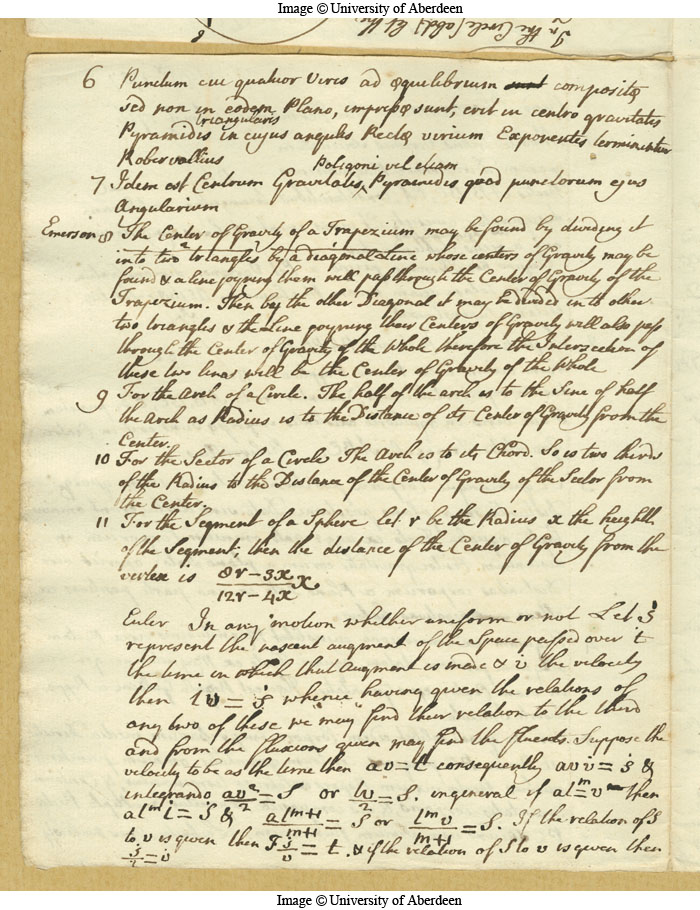 Image © University of Aberdeen
In the Circle
6 Punctum cui quatuor vires ad æquilibrium sunt compositæ
sed non in eodem Plano, impressæ sunt, erit in centro gravitatis
triangularis
Pyramidis in cujus angulis Rectæ virium Exponentes terminentur
Robervallius
Poligoni vel etiam
7 Idem est Centrum Gravitatis, Pyramidis quod punctorum ejus
Angularium
Emerson 8 The Center of Gravity of a Trapezium may be found by dividing it
into two triangles by a diagonal Line whose centers of Gravity may be
found & a line joyning them will pass through the Center of Gravity of the
Trapezium. Then by the other Diagonal it may be divided into other
two triangles & the line joyning their Centers of Gravity will also pass
through the Center of Gravity of the Whole therefore the Intersection of
these two lines will be the Center of Gravity of the Whole
9 For the Arch of a Circle. The half of the arch is to the Sine of half
the Arch as Radius is to the Distance of its Center of Gravity from the
Center.
10 For the Sector of a Circle The Arch is to its Chord. So is two thirds
of the Radius to the Distance of the Center of Gravity of the Sector from
the Center.
11 For the Segment of a Sphere let r be the Radius x the height
of the Segment; then the distance of the Center of Gravity from the
vertex is (8r–3x)/(12r–4x) x
Euler In any motion whether uniform or not Let ṡ
represent the nascent augment of the Space passed over ṫ
the time in which that Augment is made & v̇ the velocity
then ṫv = ṡ whence having given the relations of
any two of these we may find their relation to the third
and from the fluxions given may find the fluents. Suppose the
velocity to be as the time then av=t consequently avv̇ = ṡ &
integrando av²/2 = S or tv/2 = S. in general if atᵐ=v then
atᵐṫ = ṡ & atᵐ⁺¹/m+1 = S or tᵐv/m+1 = S. If the relation of S
to v is given then F ṡ/v = t. & if the relation of S to v is given then
ṡ/t = v̇
Image © University of Aberdeen